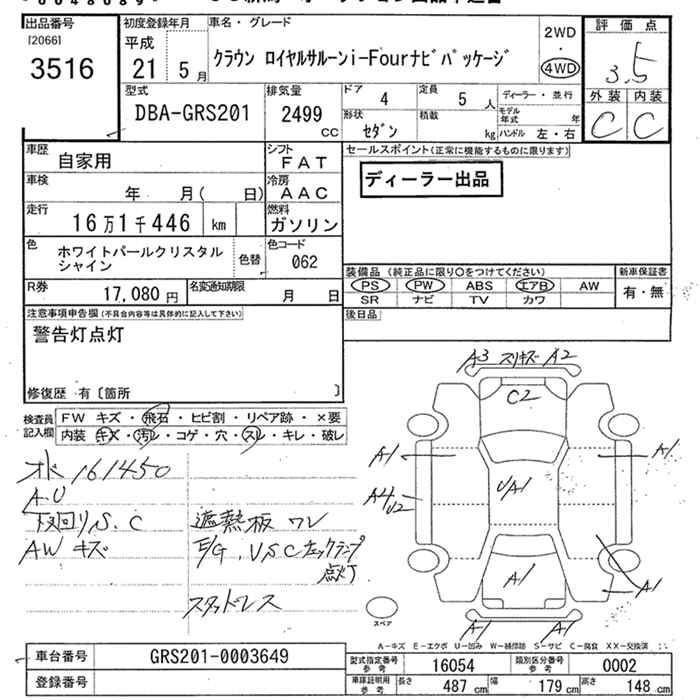 出品番号
[2066]
3516
初度登録年月
平成
21年5月
車名・グレード
クラウン ロイヤルサルーンi-Fourナビパッケージ
2WD
・
4WD
評価点
3.5
外装 内装
C C
型式
DBA-GRS201
排気量
2499
CC
ドア 4
定員 5 人
ディーラー・並行
形状 セダン
積載 kg
モデル年式 年
ハンドル 左・右
車歴
自家用
シフト
FAT
車検
年 月( 日)
冷房
AAC
走行
16万1千446 km
燃料
ガソリン
色
ホワイトパールクリスタル
シャイン
色替
色コード
062
R券
17,080 円
名変通知期限
月 日
セールスポイント(正常に機能するものに限ります)
ディーラー出品
装備品 (純正品に限り○をつけてください)
PS PW ABS エアB AW
SR ナビ TV カワ
新車保証書
有・無
後日品
注意事項申告欄(不具合内容等は具体的に記入して下さい)
警告灯点灯
修復歴 有〔箇所 〕
検査員
記入欄
FW キズ・飛石・ヒビ割・リペア跡・×要
内装 キズ・汚レ・コゲ・穴・スレ・キレ・破レ
オド 161450
A.U
下回りS.C
AW キズ
遮熱板 ワレ
E/G、VSCチェックランプ
点灯
スタッドレス
A3 スリキズ A2
C2
A1 A1
A4
U2
UA1
A1
A1
A1 A1
スペア
A-キズ E-エクボ U-凹み W-補修跡 S-サビ C-腐食 XX-交換済
車台番号 GRS201-0003649
登録番号
型式指定番号
参考
16054
類別区分番号
参考
0002
車庫証明用
参考
長さ 487 cm
幅 179 cm
高さ 148 cm